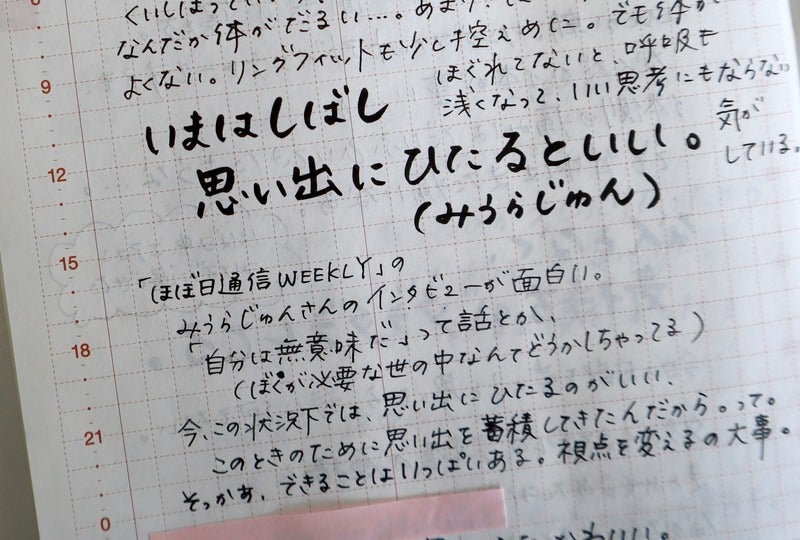 なんだか体がだるい…。あまり
よくない。リングフィットも少し控えめに。でも体が
ほぐれてないと、呼吸も
浅くなって、いい思考にもならない
気が
している。
9
いまはしばし
12
思い出にひたるといい。
(みうらじゅん)
15
「ほぼ日通信WEEKLY」の
みうらじゅんさんのインタビューが面白い。
18
「自分は無意味だ」って話とか、
(ぼくが必要な世の中なんてどうかしちゃってる)
今、この状況下では、思い出にひたるのがいい、
21
このときのために思い出を蓄積してきたんだから。って。
そっかあ、できることはいっぱいある。視点を変えるの大事。
0
かわいい。